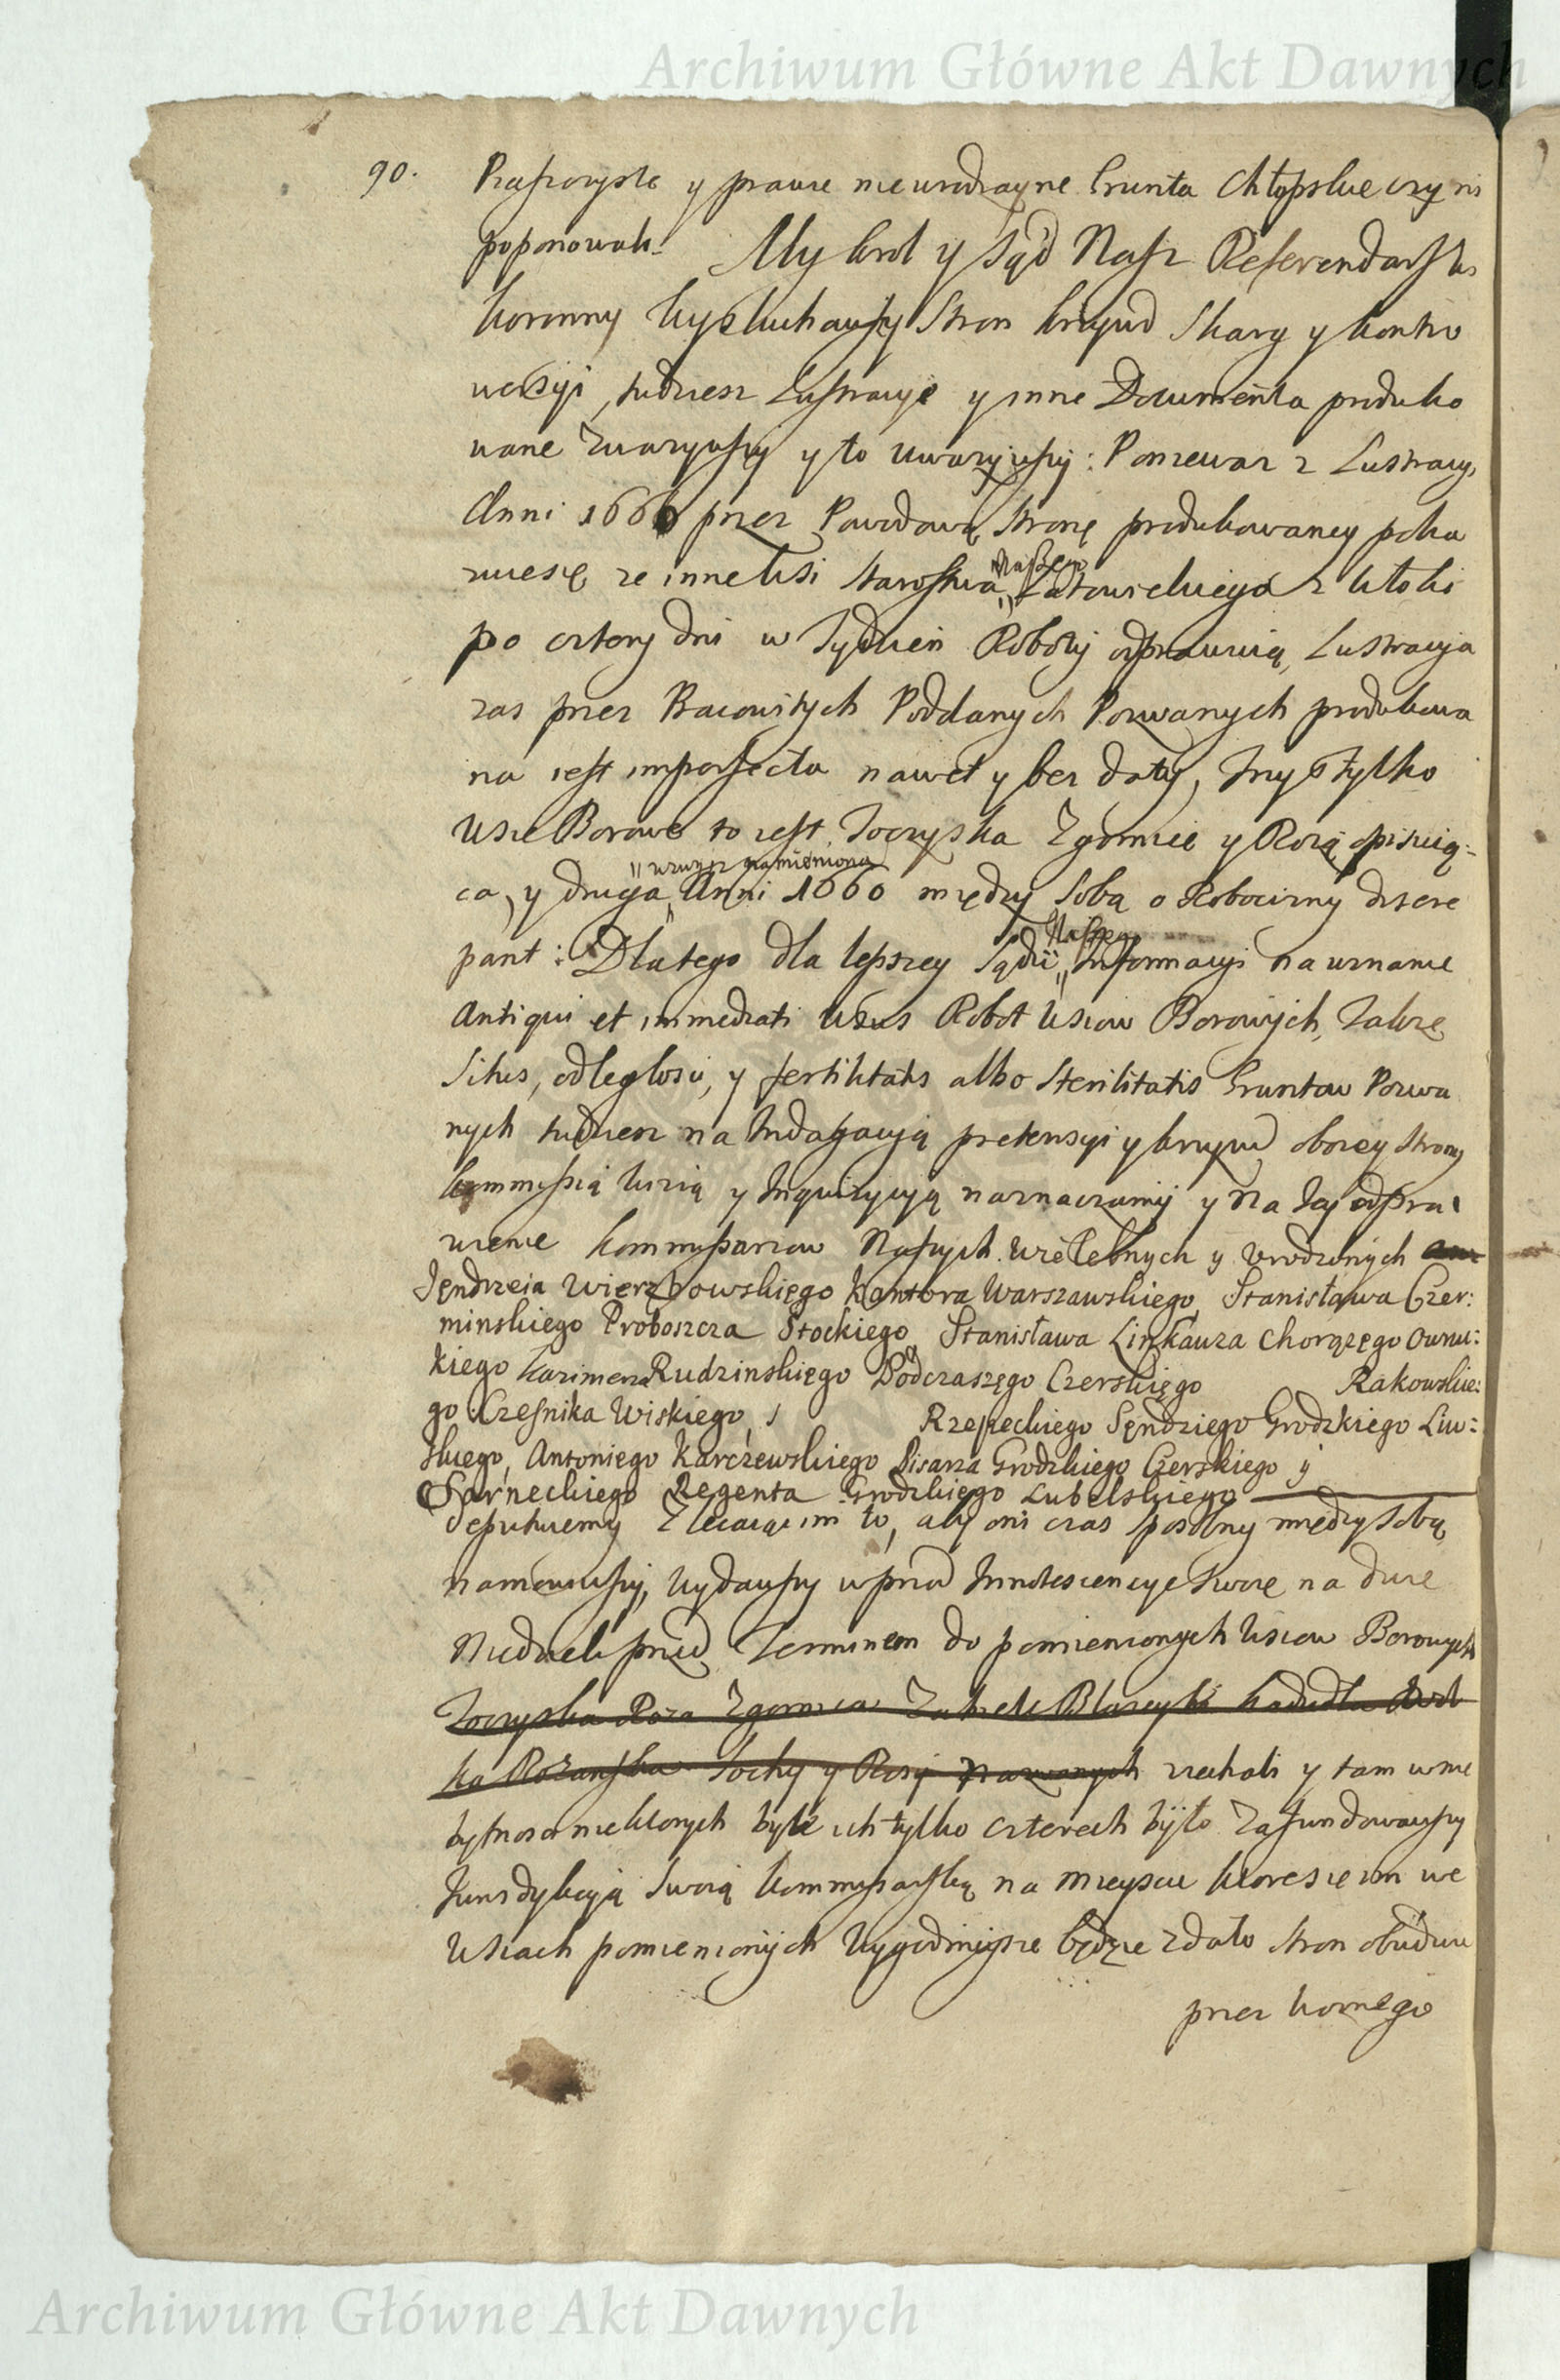 Archiwum Główne Akt Dawnych
90.
Piaszczyste y prawie nieurodzayne Grunta Chłopskie czynsz
poponowali. My Krol y Sąd Nasz Referendarski
Koronny Wysłuchawszy Stron krzywd Skarg y kontro
wersyi, tudziesz Lustracye y inne Documenta produko
wane Zwazywszy y to uwazywszy: Poniewaz z Lustracyi
Anni 1660 przez Powodową stronę produkowaney poka
zuie się ze inne Wsi Starostwa Naszego Latowickiego z Włoki
po cztery dni w Tydzień Roboty odprawuią, Lustracya
zas przez Pracowitych Poddanych Pozwanych produkowa
na iest imperfecta nawet y bez daty, Trzy tylko
Wsie Borowe to iest, Toczyska Zgornice y Rozą opisuią-
ca, y druga wzwysz namieniona Anni 1660 między sobą o Robocizny discre
pant: Dlatego dla lepszey Sądu Naszego Informacyi na uznanie
Antiqui et immediati Usus Robot Wsiow Borowych, Takze
Situs, odległosci, y fertilitatis albo Sterilitatis Gruntow Pozwa
nych tudziesz na Indagacyą pretensyi y krzywd oboiey strony
Kommissią Wizią y Inquizycyą naznaczamy y na Iey odpra
wienie Kommissarzow Naszych Wielebnych y Urodzonych
Jęndrzeia Wierzbowskięgo Kantora Warszawskięgo, Stanisława Czer:
minskiego Proboszcza Stockiego, Stanisława Linkauza Chorązęgo Owruc:
kiego Kazimierza Rudzinskięgo Podczaszęgo Czerskięgo Rakowskie:
go Czesnika Wiskiego, Rzepeckiego Sęndziego Grodzkiego Liw:
skiego, Antoniego Karczewskiego Pisarza Grodzkiego Czerskiego y
Sarneckiego Regenta Grodzkięgo Lubelskiego
deputuiemy Zlecaiąc im to, aby oni czas sposobny między sobą
namowiwszy, wydawszy wprzod Innotescencye Swoie na dwie
Niedzieli przed Terminem do pomienionych Wsiow Borowych
Toczyska Roza Zgornica Zakrze Blaszyki Kadzidła Wol
ka Rozanska Sochy y Rosy nazwanych ziechali y tam w nie
bytnosci niektorych byle ich tylko czterech było Zafundowawszy
Jurisdykcyą Swoią Kommissarską na mieyscu ktore się im we
Wsiach pomienionych Wygodnieysze będzie zdało stron obudwu
przez Woznego
Archiwum Główne Akt Dawnych